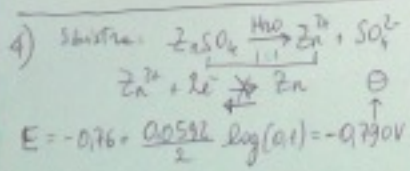 4) ZnSO₄ H₂O → Zn²⁺ + SO₄²⁻
1:1
Zn²⁺ + 2e⁻ ⇸ Zn ⊖
E = -0,76 + 0,0592/2 log(0,1) = -0,790V